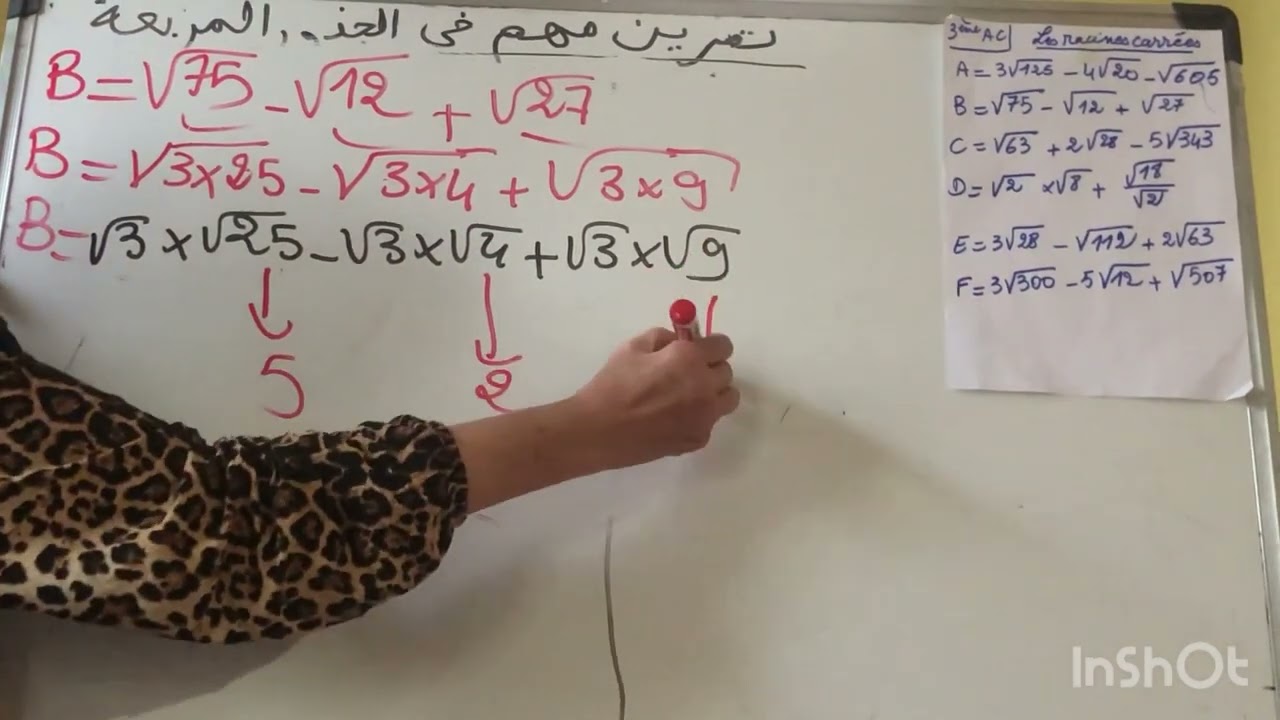 تمرين مهم في الجذ.. المربعة
B=√75 - √12 + √27
B=√3×25 - √3×4 + √3×9
B=√3×√25-√3×√4+√3×√9
5 2
3ème AC Les racines carrées
A=3√125 - 4√20 - √605
B=√75 - √12 + √27
C=√63 + 2√28 - 5√343
D=√2 ×√8 + √18/√2
E=3√28 - √112 + 2√63
F=3√300 - 5√12 + √507
InShOt